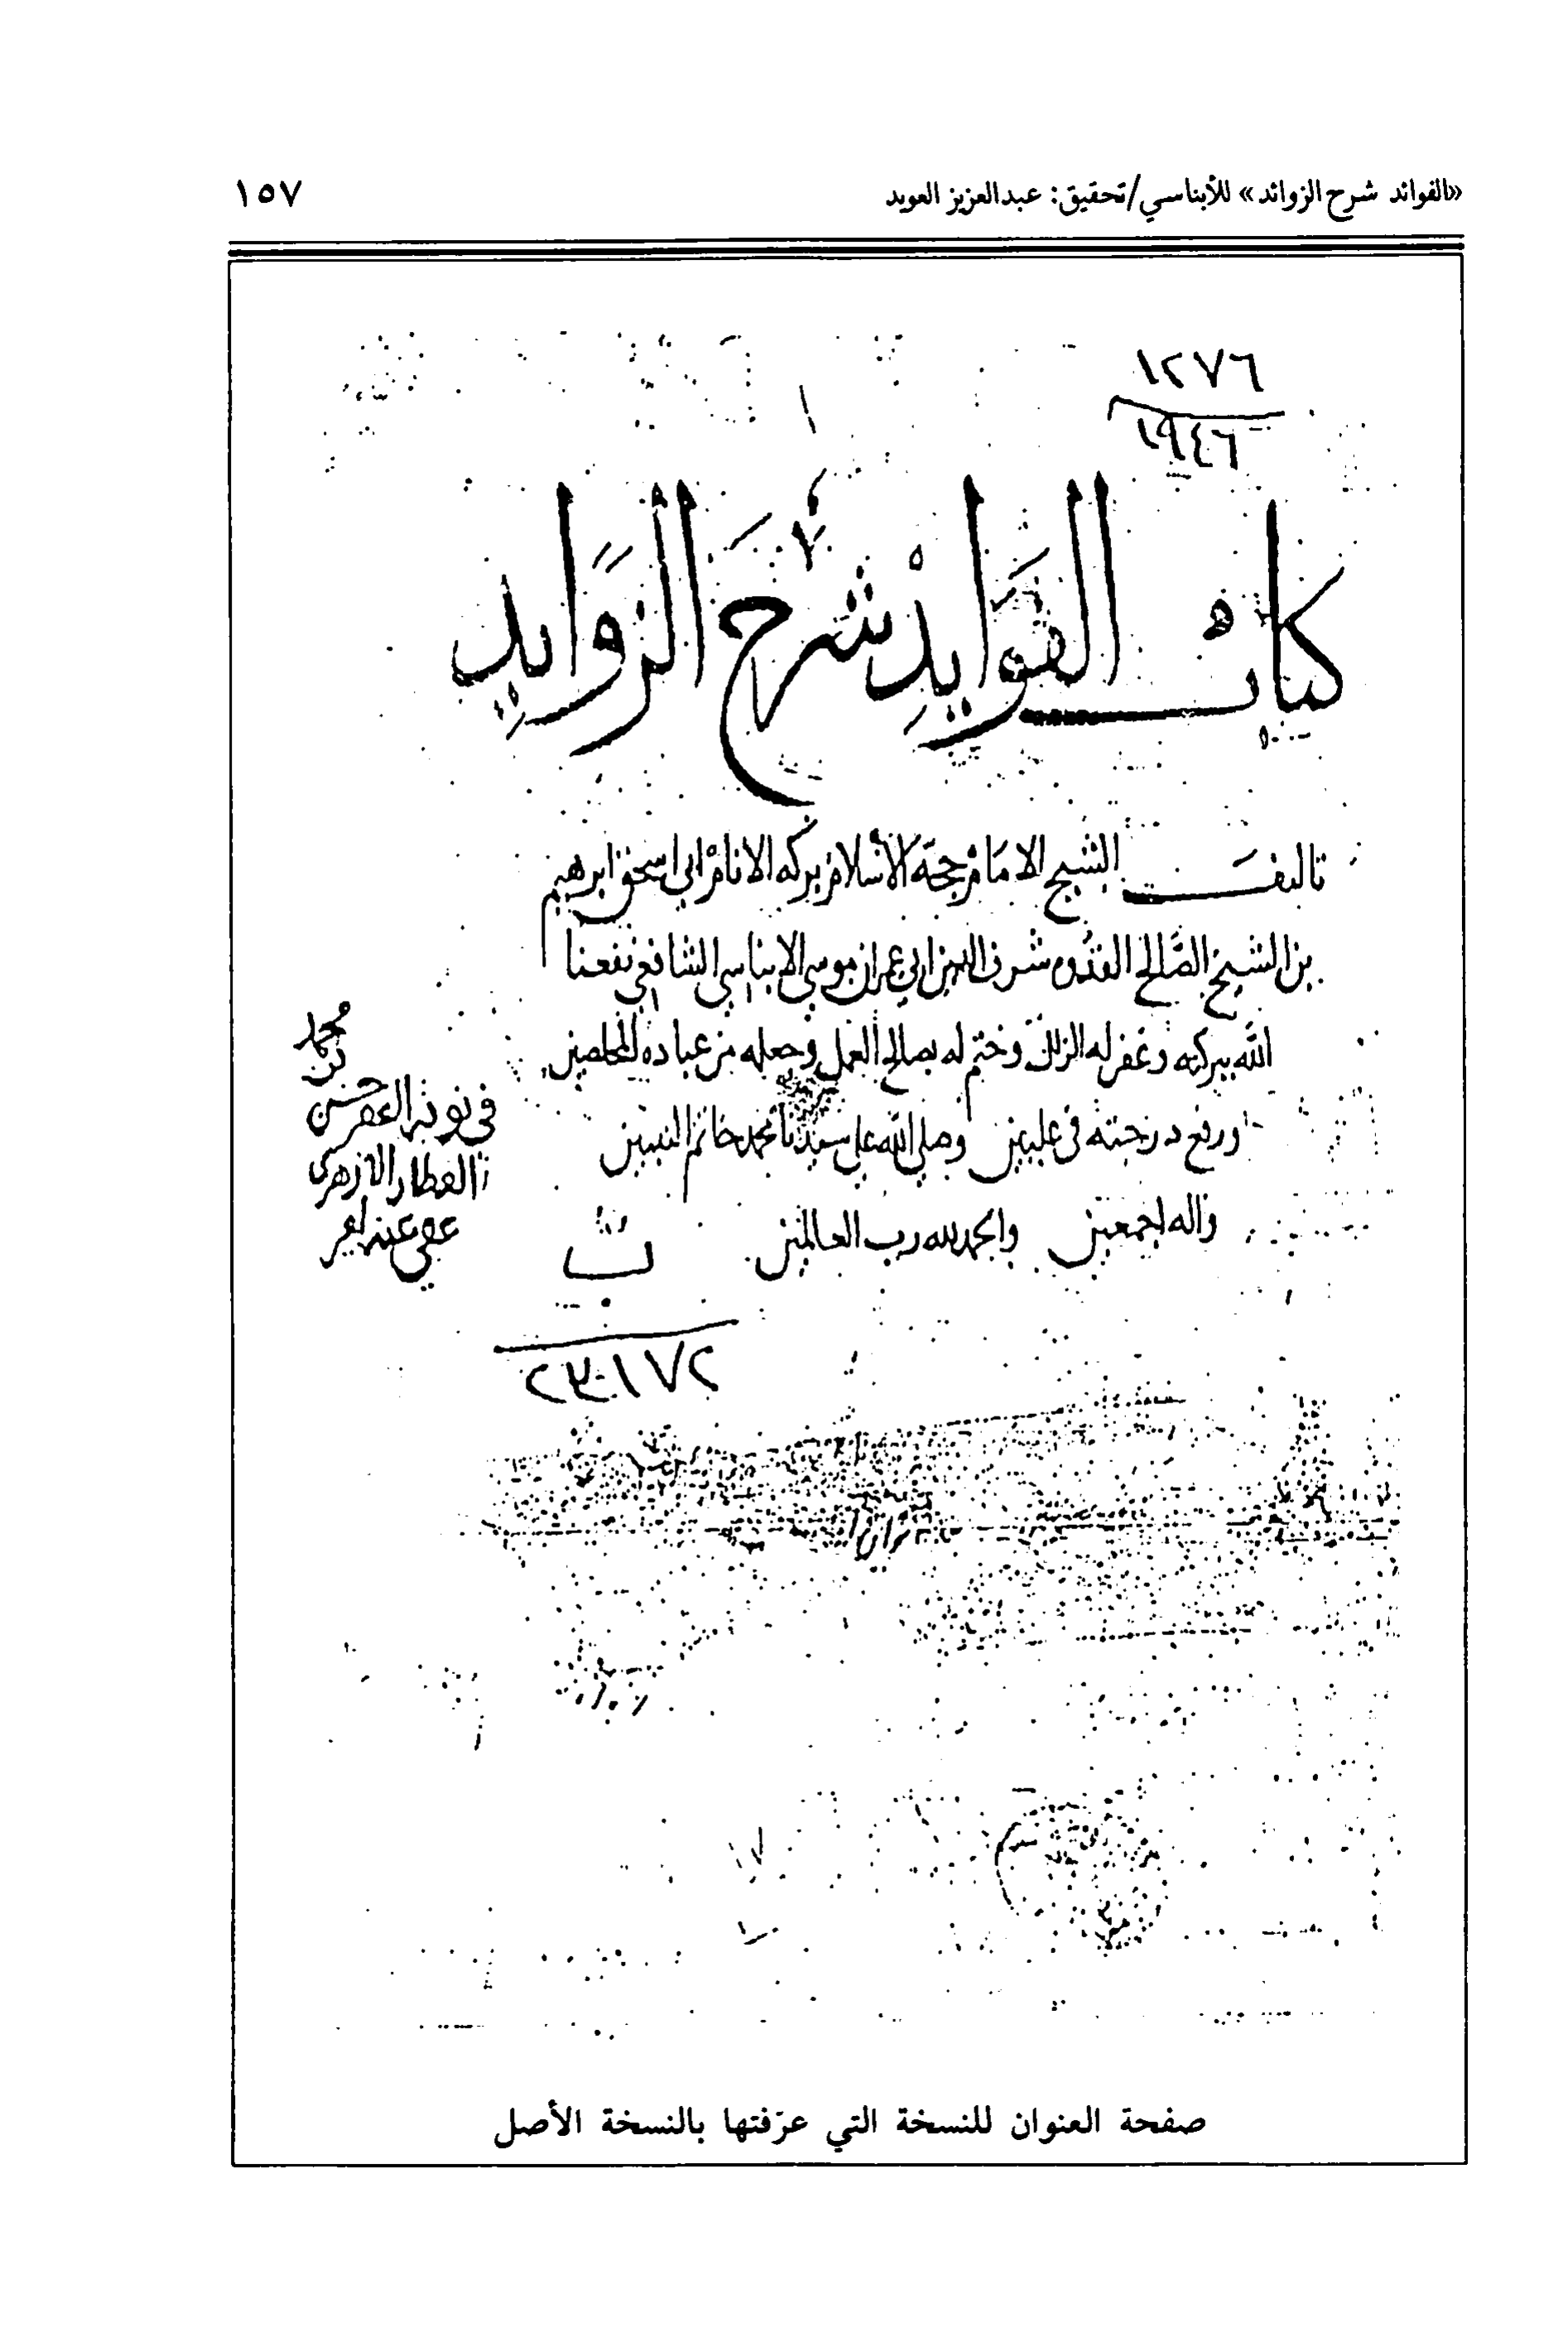 «الفوائد شرح الزوائد» للأبناسي/تحقيق: عبدالعزيز العويد
١٥٧
١٢٧٦
١٩٤٦
كتاب الفَوَايدِ شرح الزوَايدِ
تاليف الشيخ الامام حجة الاسلام بركه الانام ابي اسحق ابرهيم
بن الشيخ الصَّالح القدوه شرف الدين ابي عمران موسي الابناسي الشافعي نفعنا
الله ببركته وغفر له الزلل وختم له بصالح العمل وجعله من عباده المخلصين
ورفع درجته في عليين وصلي الله علي سيدنا محمد خاتم النبيين
واله اجمعين والحمد لله رب العالمين
في نوبة
محمد
بن
حسن
العطار الازهرى
عفي عنه
صفحة العنوان للنسخة التي عرّفتها بالنسخة الأصل